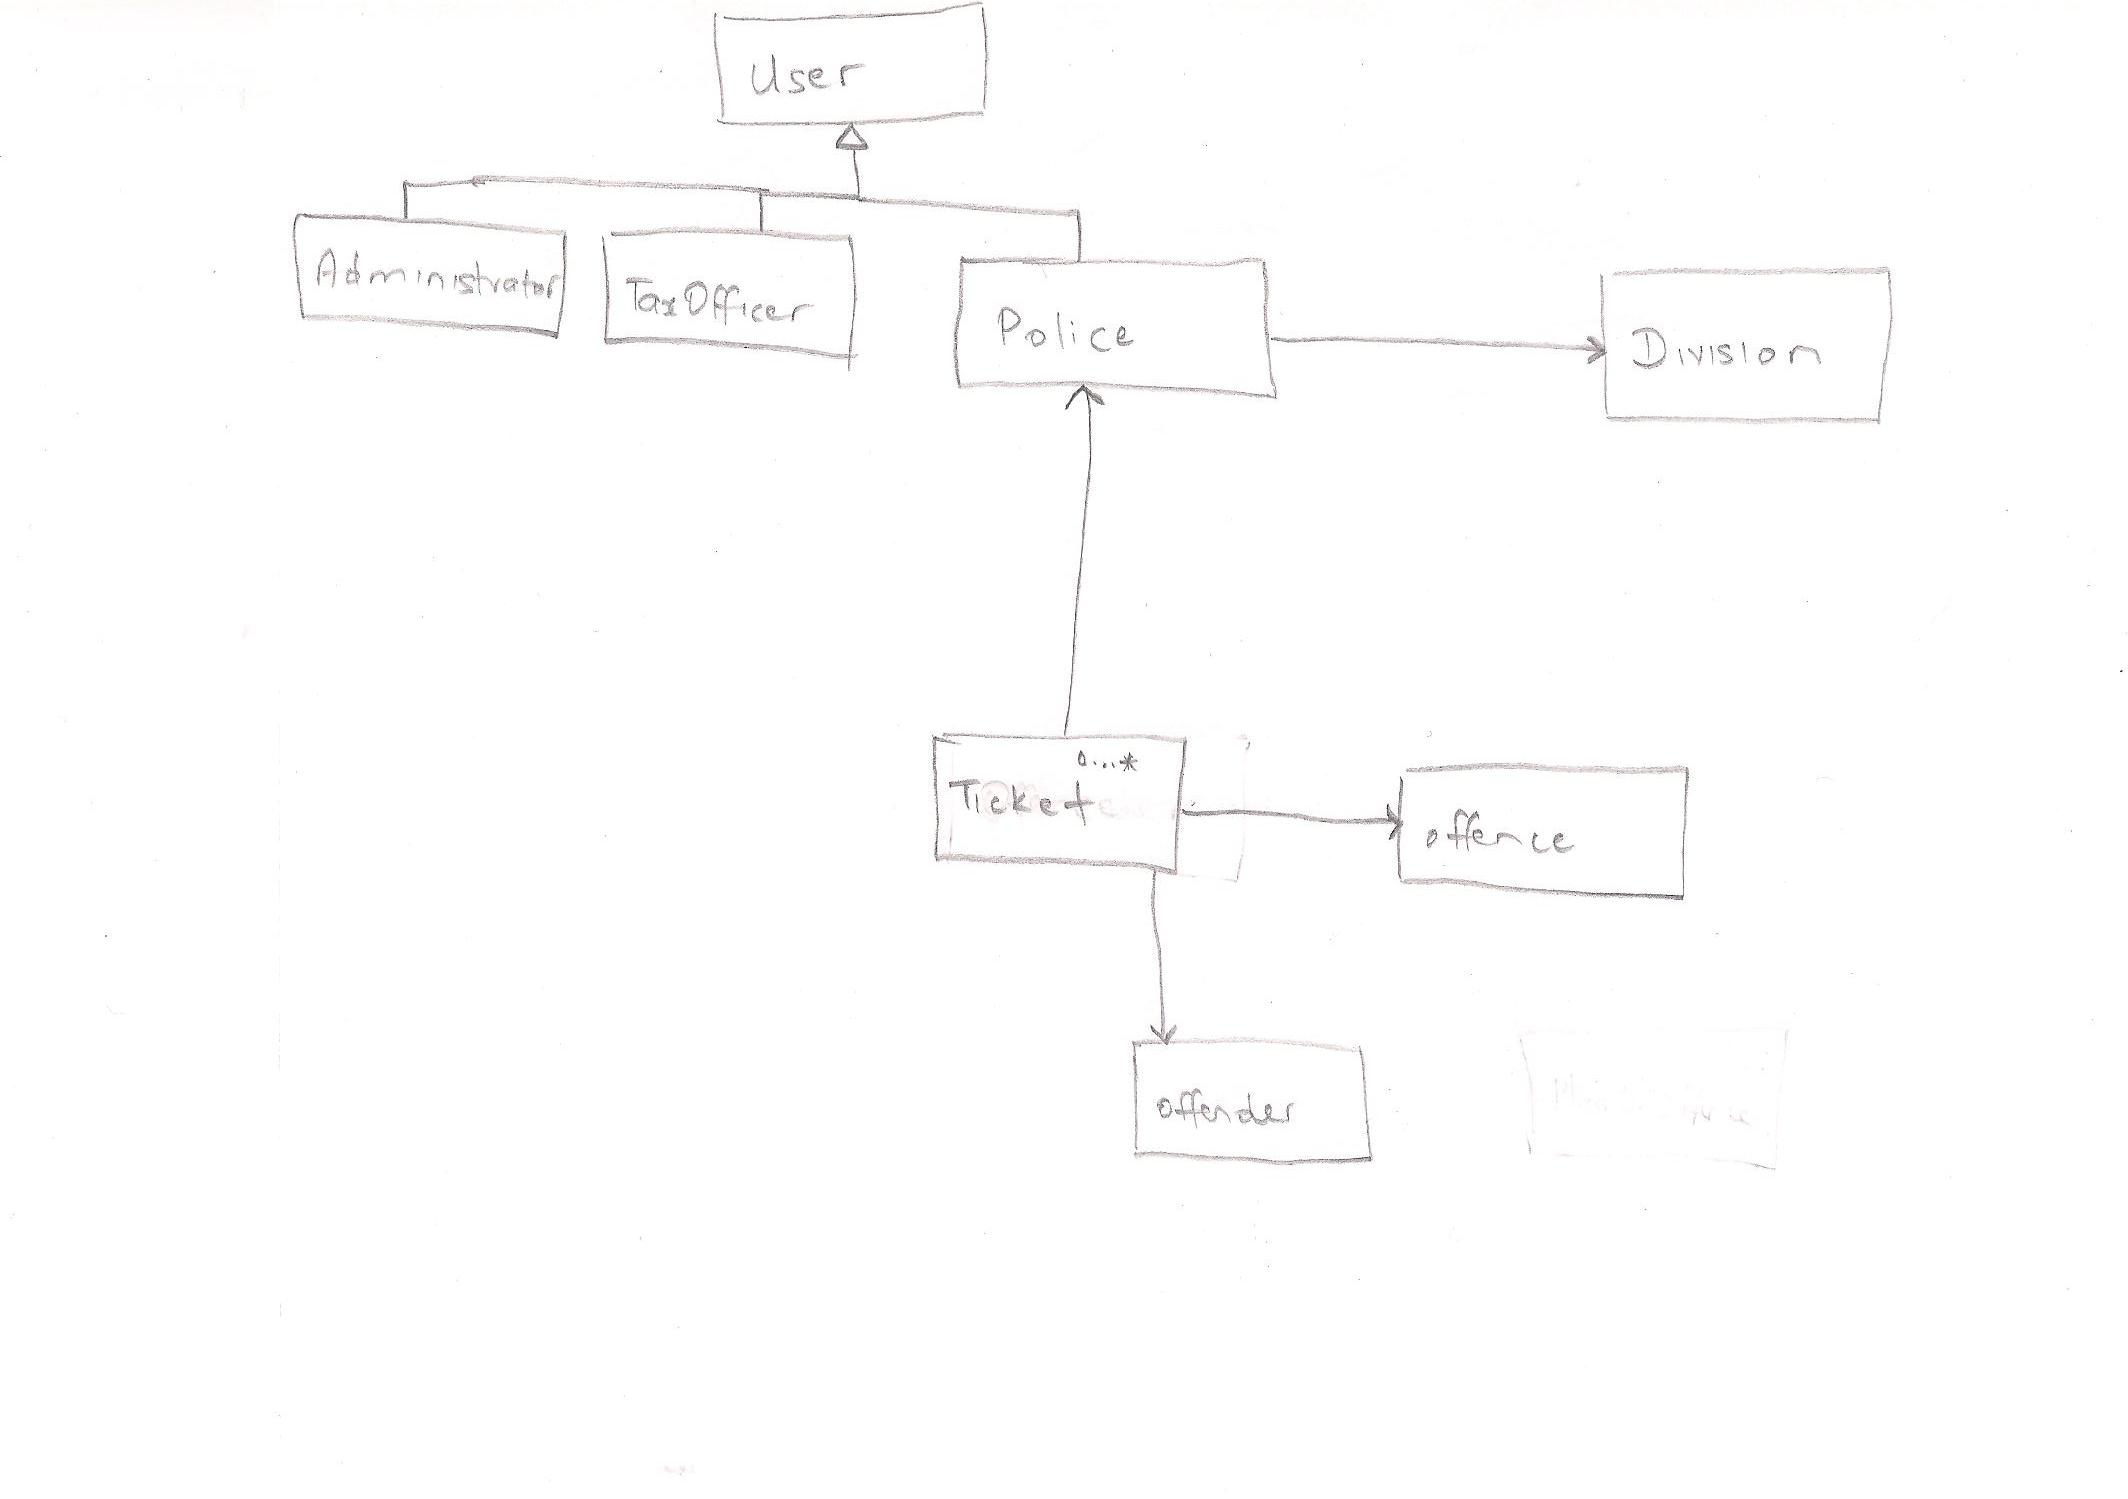 User
Administrator
TaxOfficer
Police
Division
0...*
Ticket
offence
offender